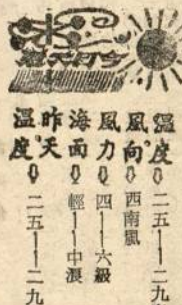 今日天氣
溫度 二五——二九
風向 西南風
風力 四——六級
海面 輕——中浪
昨天溫度 二五——二九